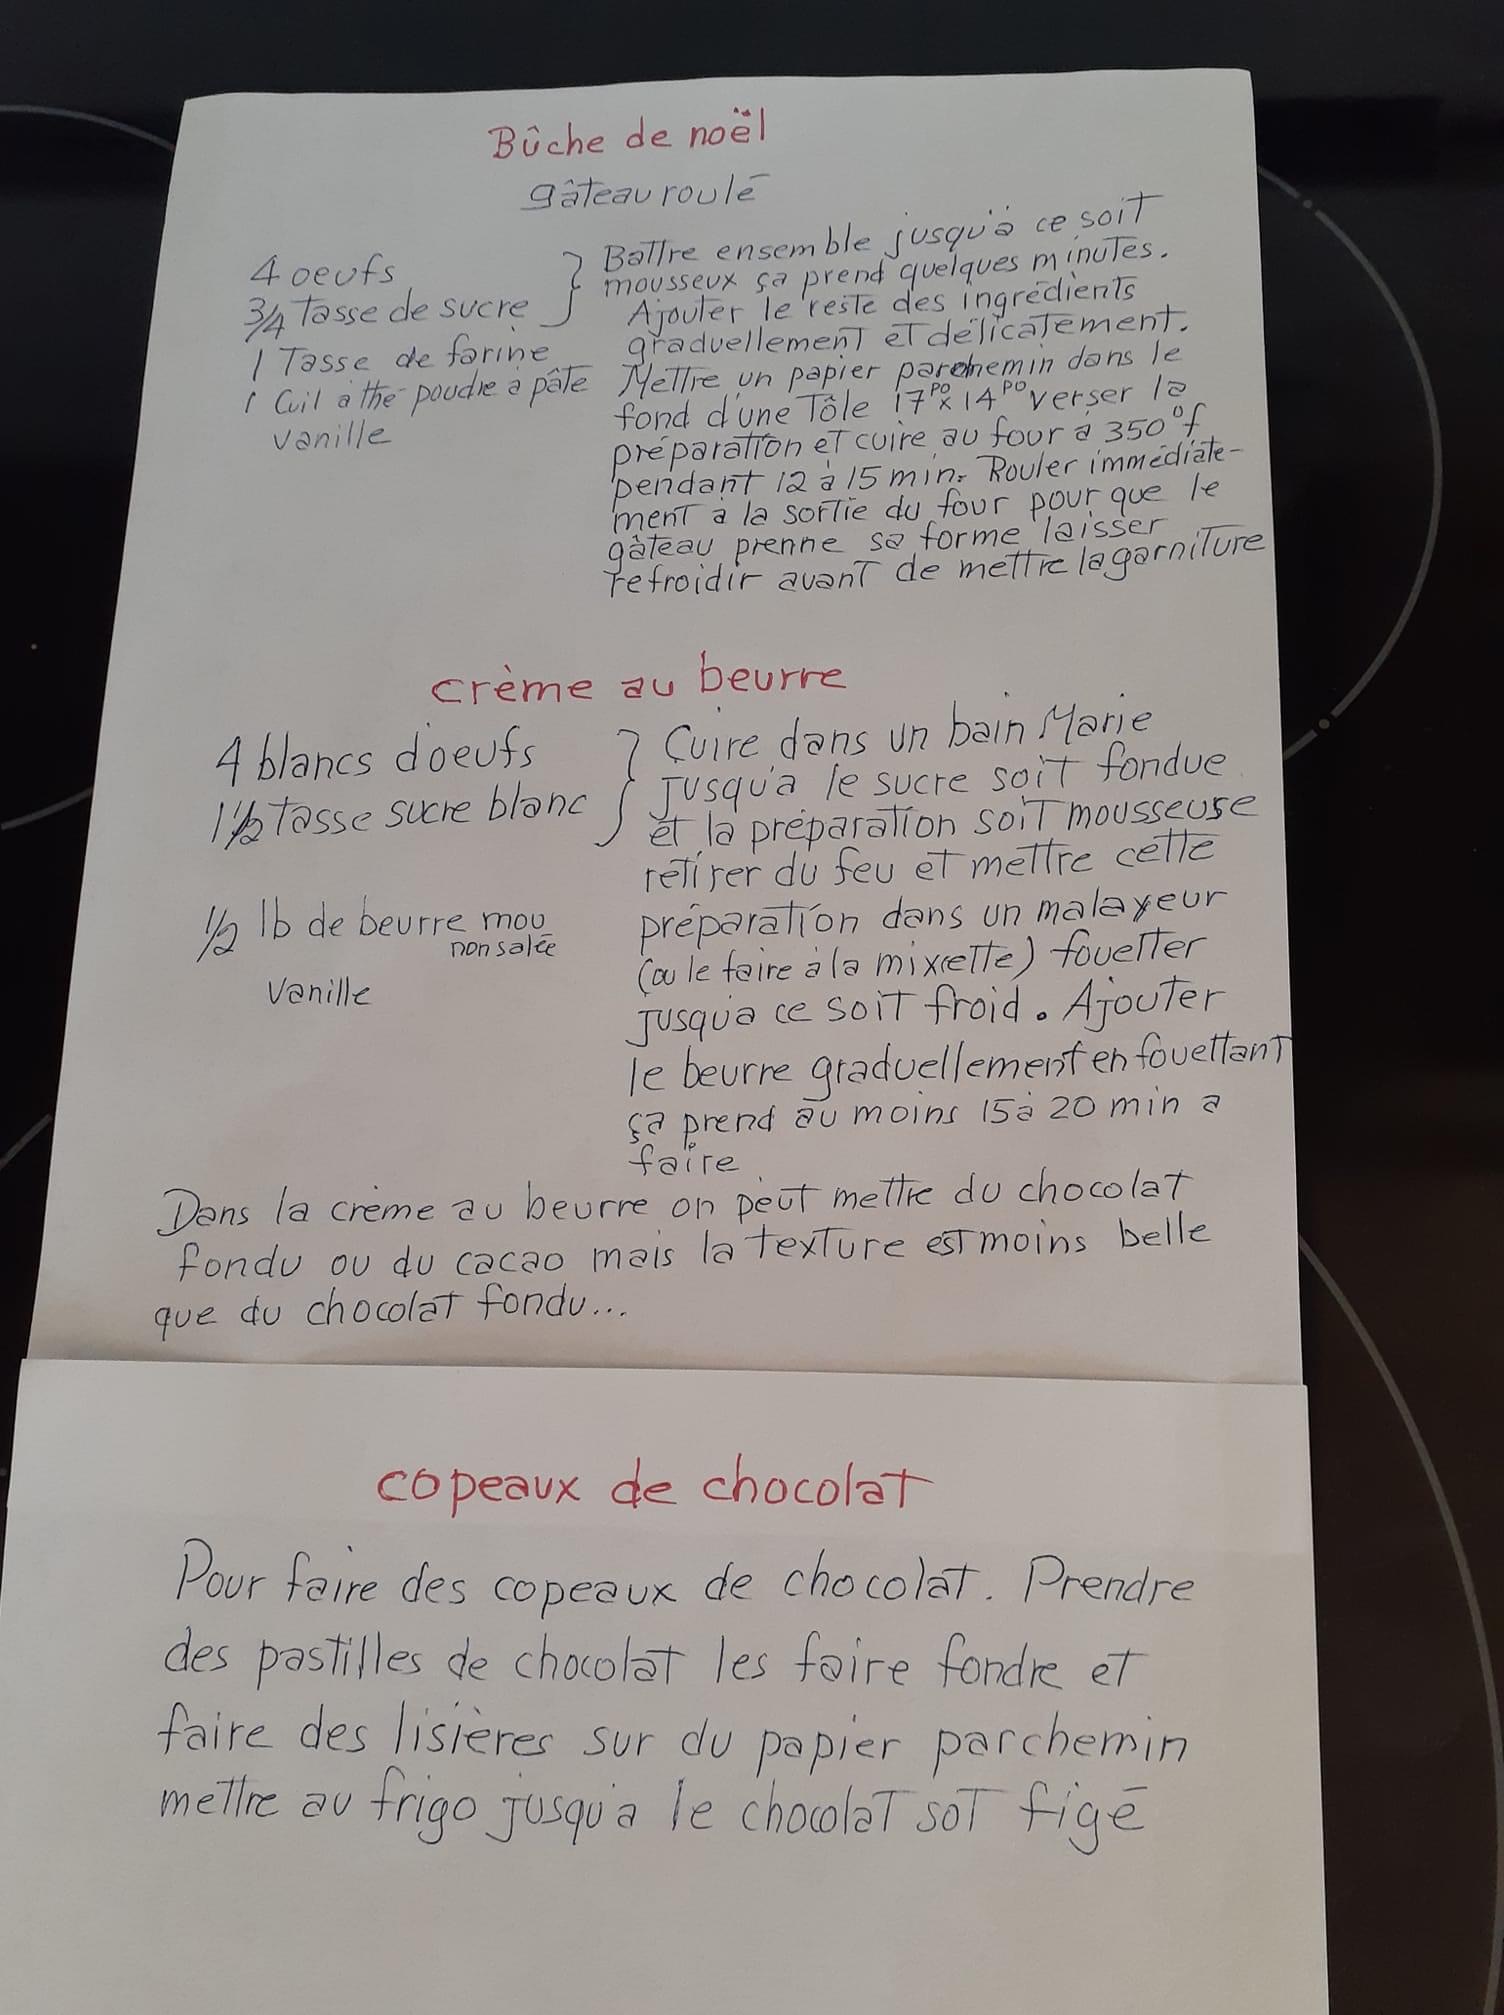 Bûche de noël
gâteau roulé
4 oeufs
3/4 Tasse de sucre
1 Tasse de farine
1 Cuil à thé poudre à pâte
vanille
Battre ensemble jusqu'à ce soit
mousseux ça prend quelques minutes.
Ajouter le reste des ingrédients
graduellement et délicatement.
Mettre un papier parchemin dans le
fond d'une Tôle 17 po x 14 po verser la
préparation et cuire au four à 350°f
pendant 12 à 15 min. Rouler immédiate-
ment à la sortie du four pour que le
gâteau prenne sa forme laisser
refroidir avant de mettre la garniture
crème au beurre
4 blancs d'oeufs
1 1/2 Tasse sucre blanc
1/2 lb de beurre mou
non salée
Vanille
Cuire dans un bain Marie
jusqu'à le sucre soit fondue
et la préparation soit mousseuse
retirer du feu et mettre cette
préparation dans un malaxeur
(ou le faire à la mixette) fouetter
jusqu'à ce soit froid. Ajouter
le beurre graduellement en fouettant
ça prend au moins 15 à 20 min a
faire
Dans la crème au beurre on peut mettre du chocolat
fondu ou du cacao mais la texture est moins belle
que du chocolat fondu...
copeaux de chocolat
Pour faire des copeaux de chocolat. Prendre
des pastilles de chocolat les faire fondre et
faire des lisières sur du papier parchemin
mettre au frigo jusqu'à le chocolat sot figé